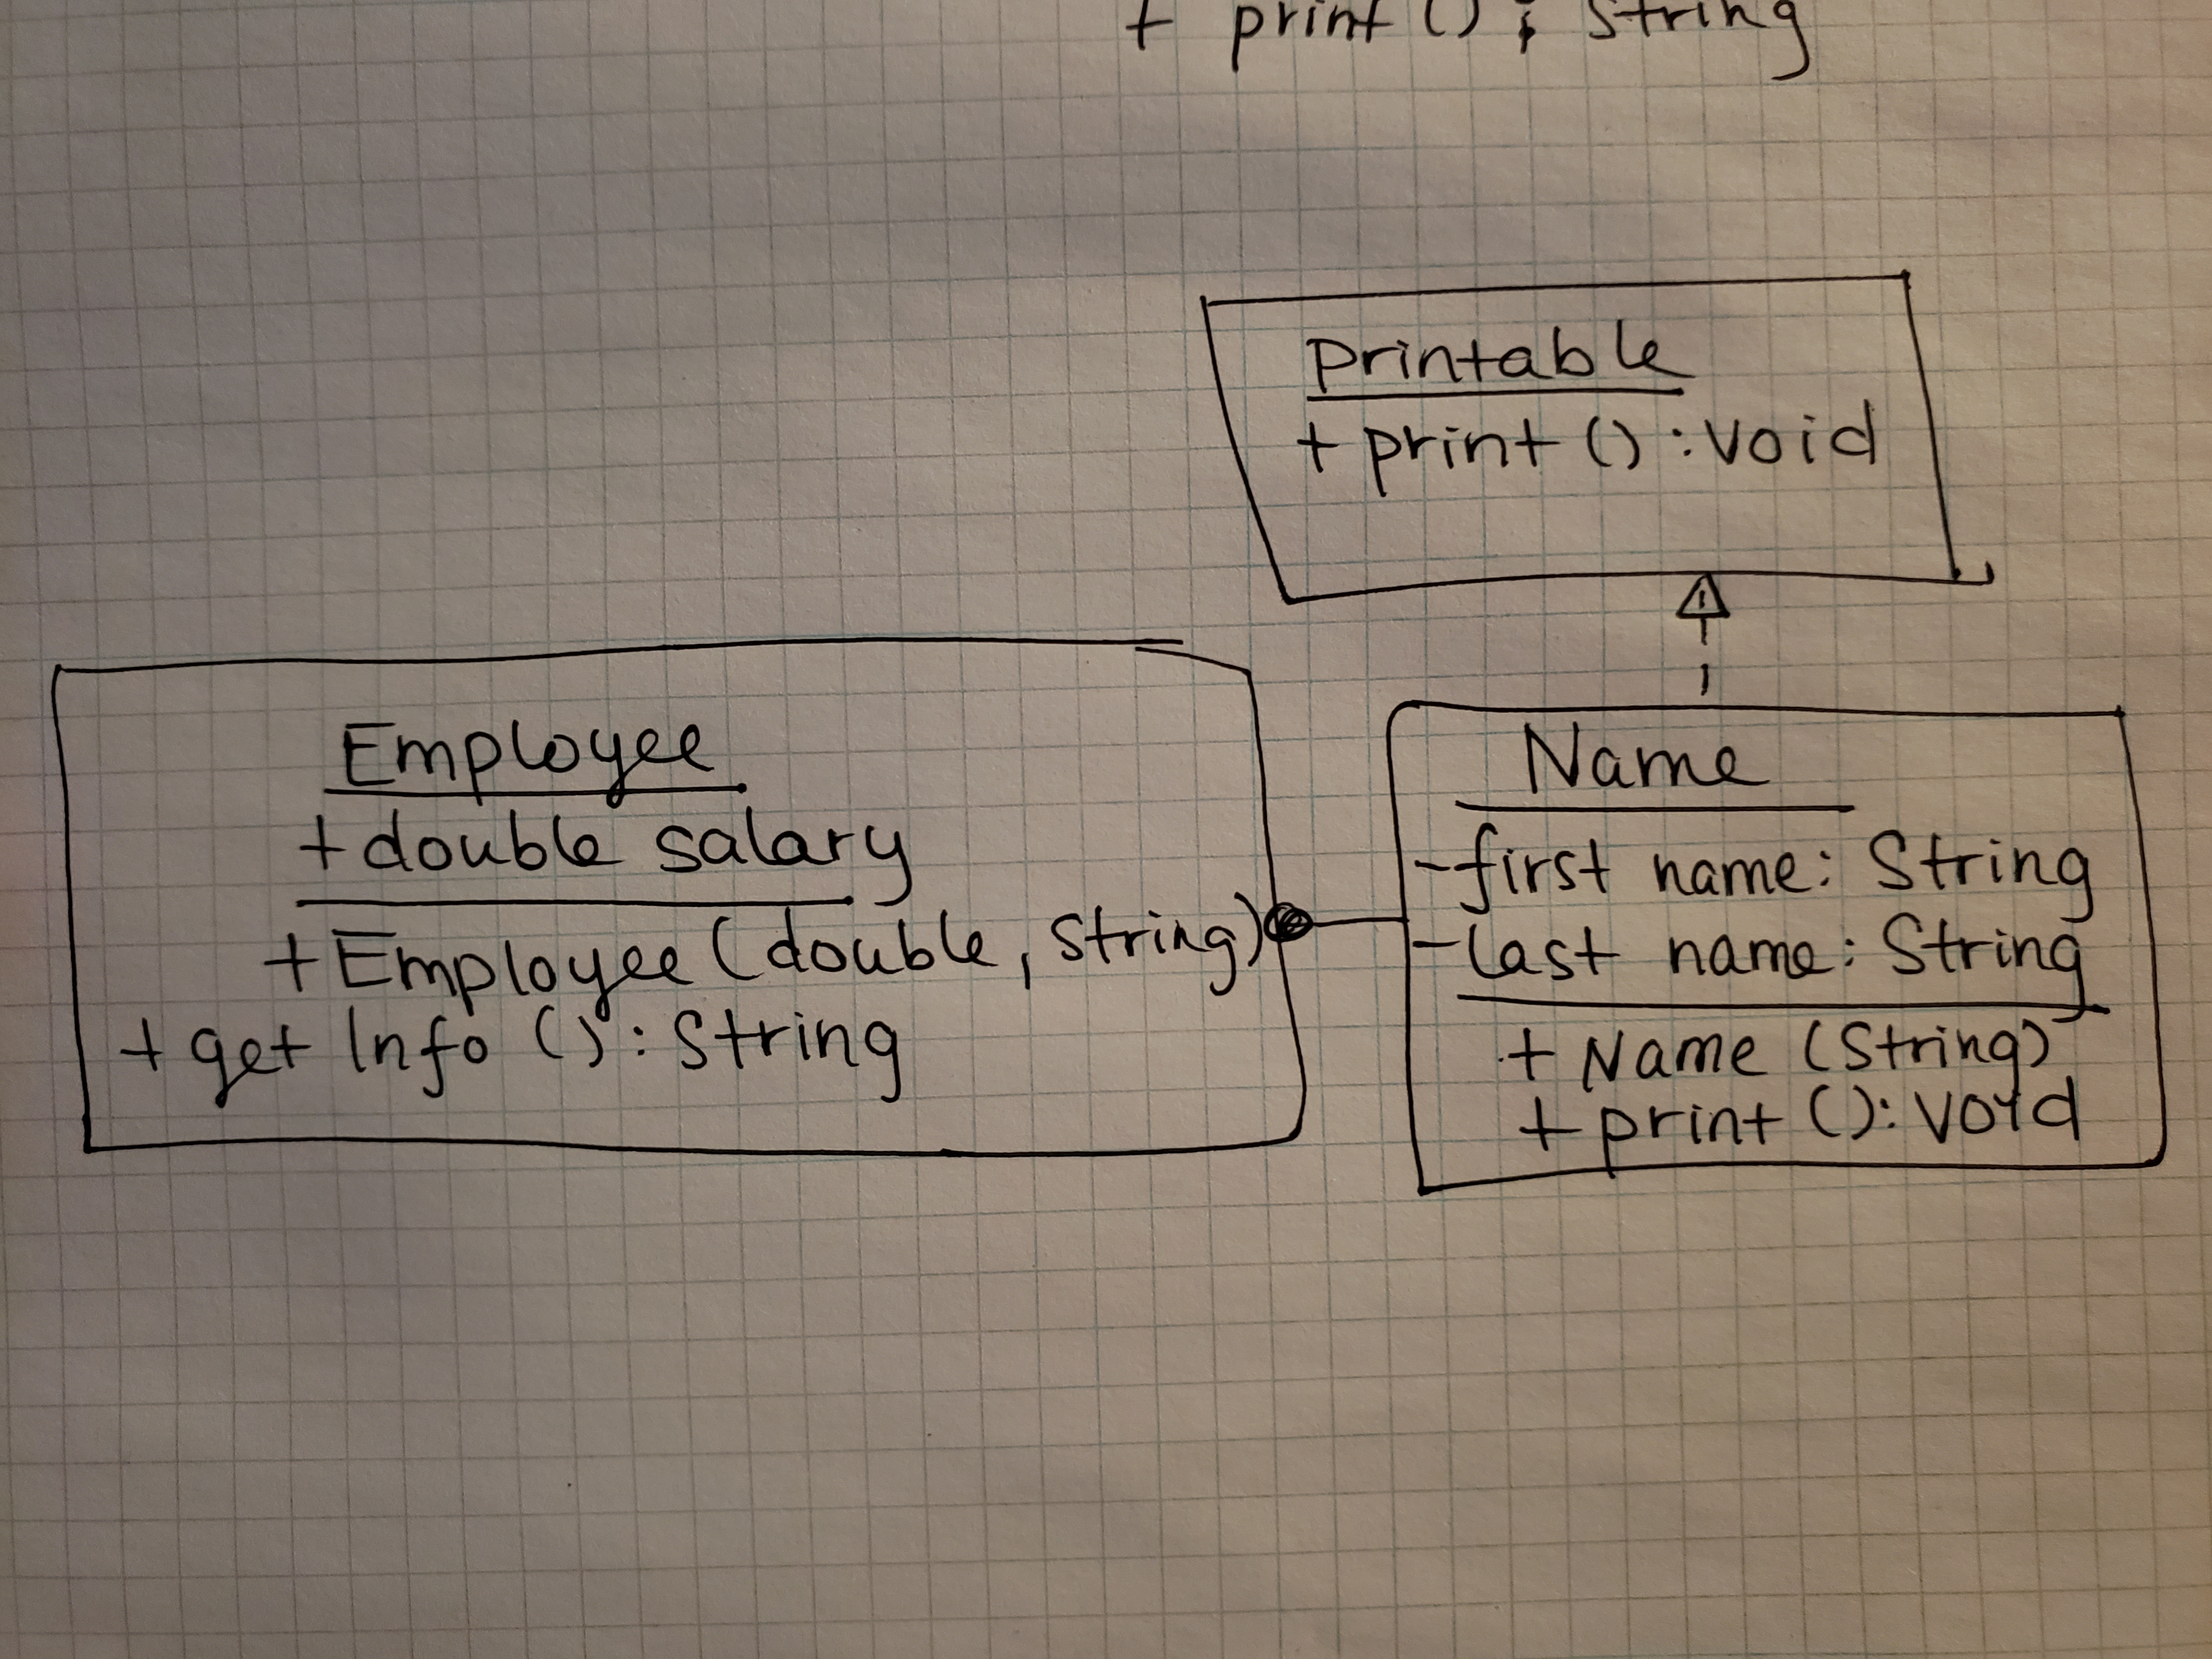 + print () : String
printable
+ print () : void
Employee
+ double salary
+ Employee (double, String)
+ get Info () : String
Name
- first name: String
- last name: String
+ Name (String)
+ print (): void